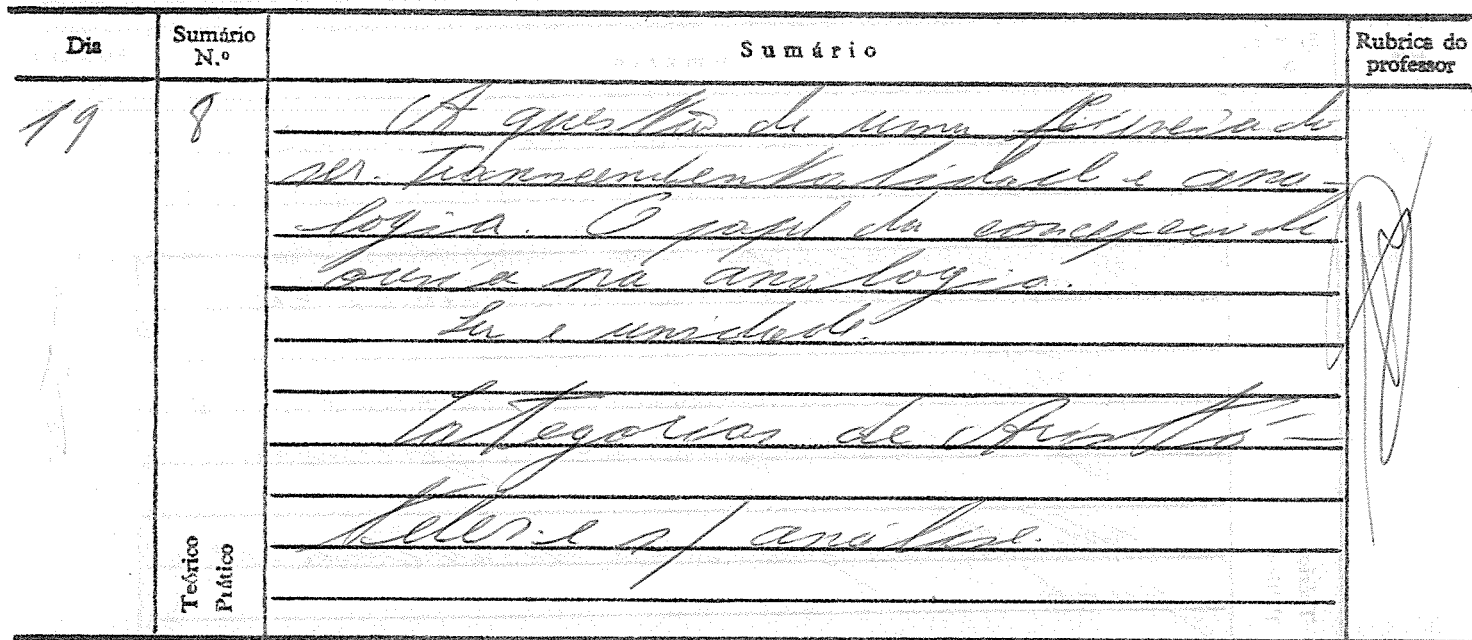 Dia
Sumário
N.º
Sumário
Rubrica do
professor
19
8
A questão de uma ciência do
ser. Transcendentalidade e ana-
logia. O papel da concepção de
ousía na analogia.
Ser e unidade.
Categorias de Aristó-
teles e s/ análise.
Teórico
Prático